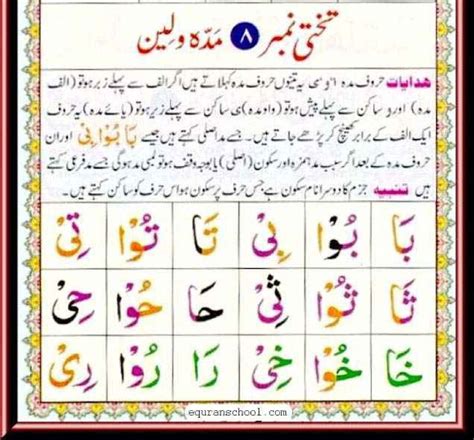 تختی نمبر ۸ مدّہ ولین
ھدایات حروف مدہ ا و ی یہ تینوں حروف مدہ کہلاتے ہیں اگر الف سے پہلے زبر ہو تو (الف
مدہ) اور و ساکن سے پہلے پیش ہو تو (واو مدہ) ی ساکن سے پہلے زیر ہو تو (یائے مدہ) یہ حروف
ایک الف کے برابر کھینچ کر پڑھے جاتے ہیں۔ جسے مد اصلی کہتے ہیں جیسے بَا بُوْا بِیْ اور ان
حروف مدہ کے بعد اگر سبب مد ہمزہ اور سکون (اصلی) یا بوجہ وقف ہو تو لمبی مد ہو گی جسے مد فرعی کہتے
ہیں تنبیہ جزم کا دوسرا نام سکون ہے جس حرف پر سکون ہو اس حرف کو ساکن کہتے ہیں۔
بَا بُوْا بِیْ تَا تُوْا تِیْ
ثَا ثُوْا ثِیْ حَا حُوْا حِیْ
خَا خُوْا خِیْ رَا رُوْا رِیْ
equranschool.com